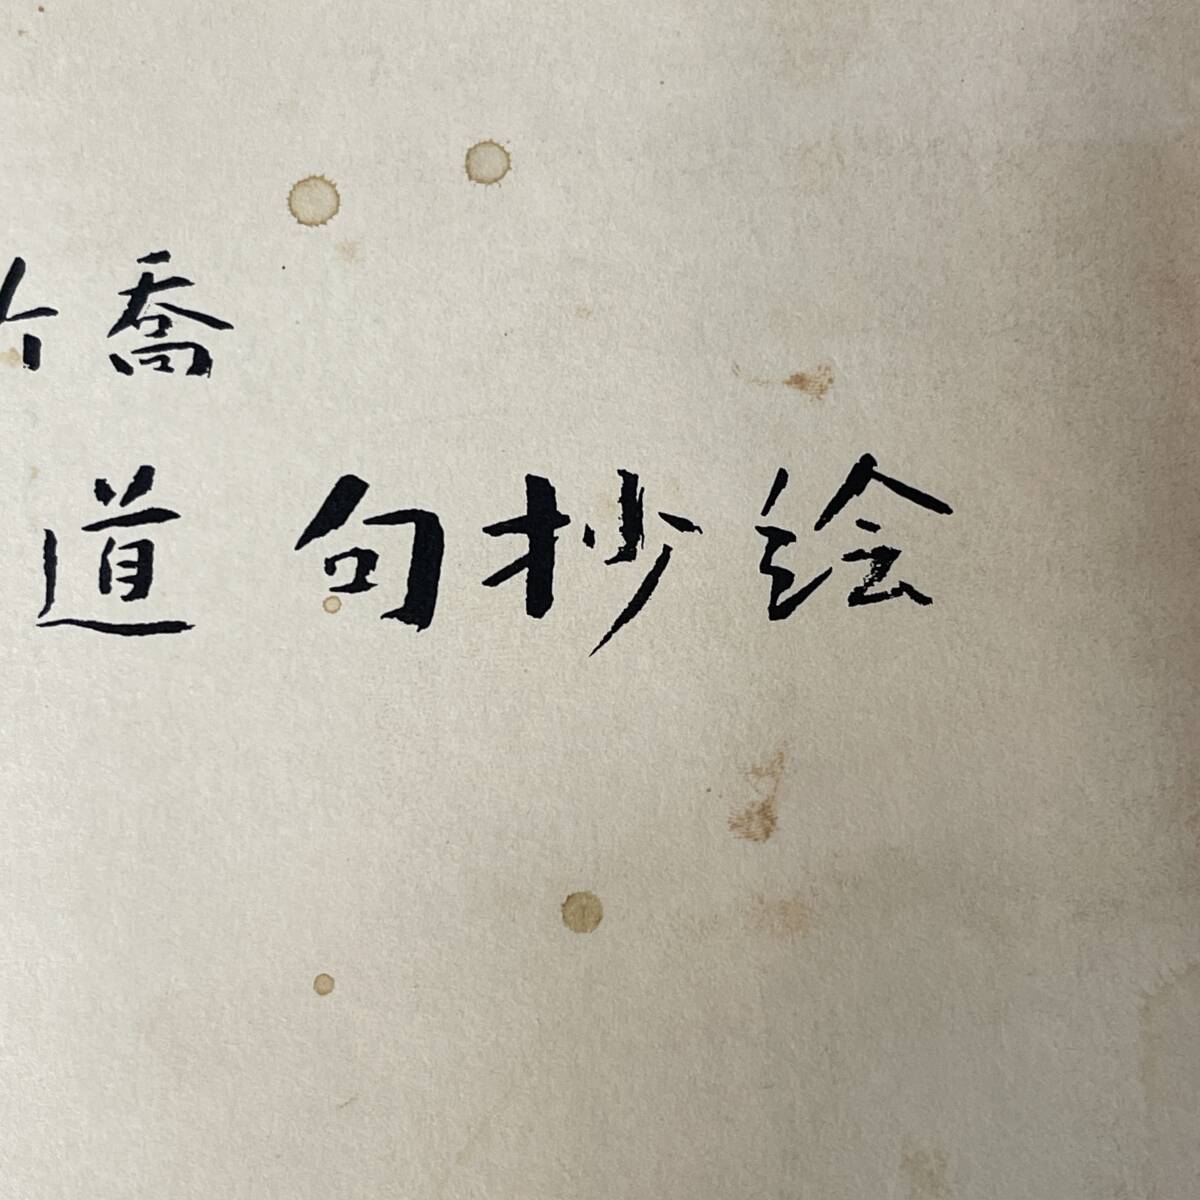 喬
道 句抄絵